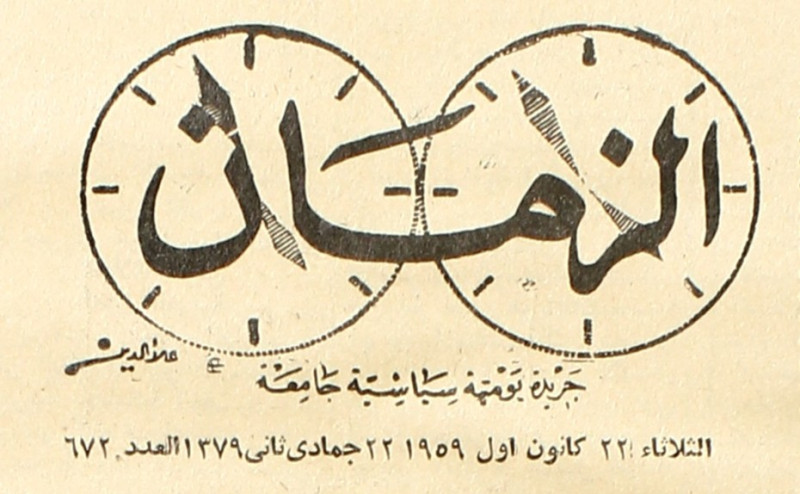 الزمان
علاء الدين
جريدة يومية سياسية جامعة
الثلاثاء ٢٢ كانون اول ١٩٥٩ ٢٢ جمادى ثانى ١٣٧٩ العدد ٦٧٢